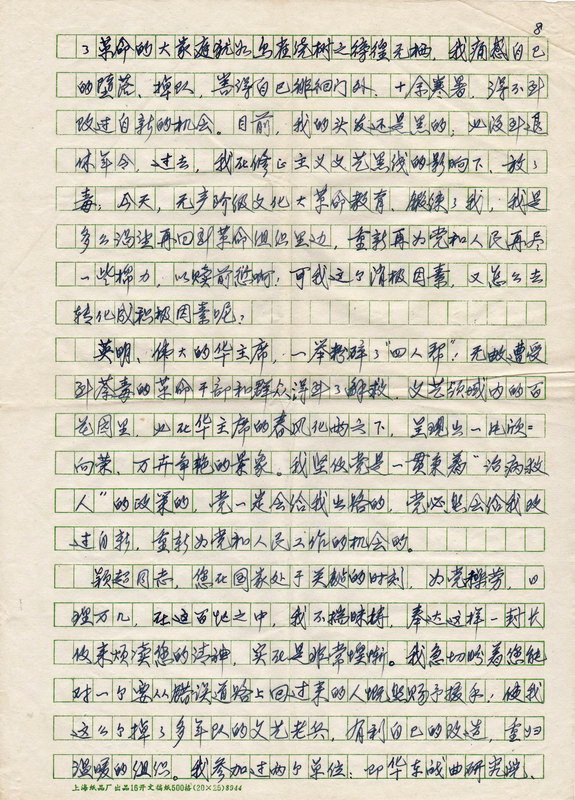 8
了革命的大家庭犹如乌雀绕树之徬徨无栖，我痛感自己
的堕落、掉队，害得自己徘徊门外，十余寒暑，得不到
改过自新的机会。目前，我的头发还是黑的，也没到退
休年令，过去，我在修正主义文艺黑线的影响下，放了
毒，今天，无产阶级文化大革命教育、锻炼了我，我是
多么渴望再回到革命组织里边，重新再为党和人民再尽
一些棉力，以赎前愆啊；可我这个消极因素，又怎么去
转化成积极因素呢？
英明、伟大的华主席，一举粉碎了“四人帮”；无故遭受
到荼毒的革命干部和群众得到了解救，文艺领域内的百
花园里，也在华主席的春风化雨之下，呈现出一片欣=
向荣、万卉争艳的景象。我坚信党是一贯秉着“治病救
人”的政策的，党一定会给我出路的，党必然会给我改
过自新，重新为党和人民工作的机会的。
颖超同志，您在国家处于关键的时刻，为党操劳，日
理万几，在这百忙之中，我不揣昧，奉达这样一封长
信来烦渎您的清神，实在是非常惶惭。我急切盼着您能
对一个要从错误道路上回过来的人慨然赐予援手，使我
这么个掉了多年队的文艺老兵，有利自己的改造，重归
温暖的组织。我参加过两个单位：即华东戏曲研究院、
上海纸品厂出品16开文稿纸500格(20×25)8944